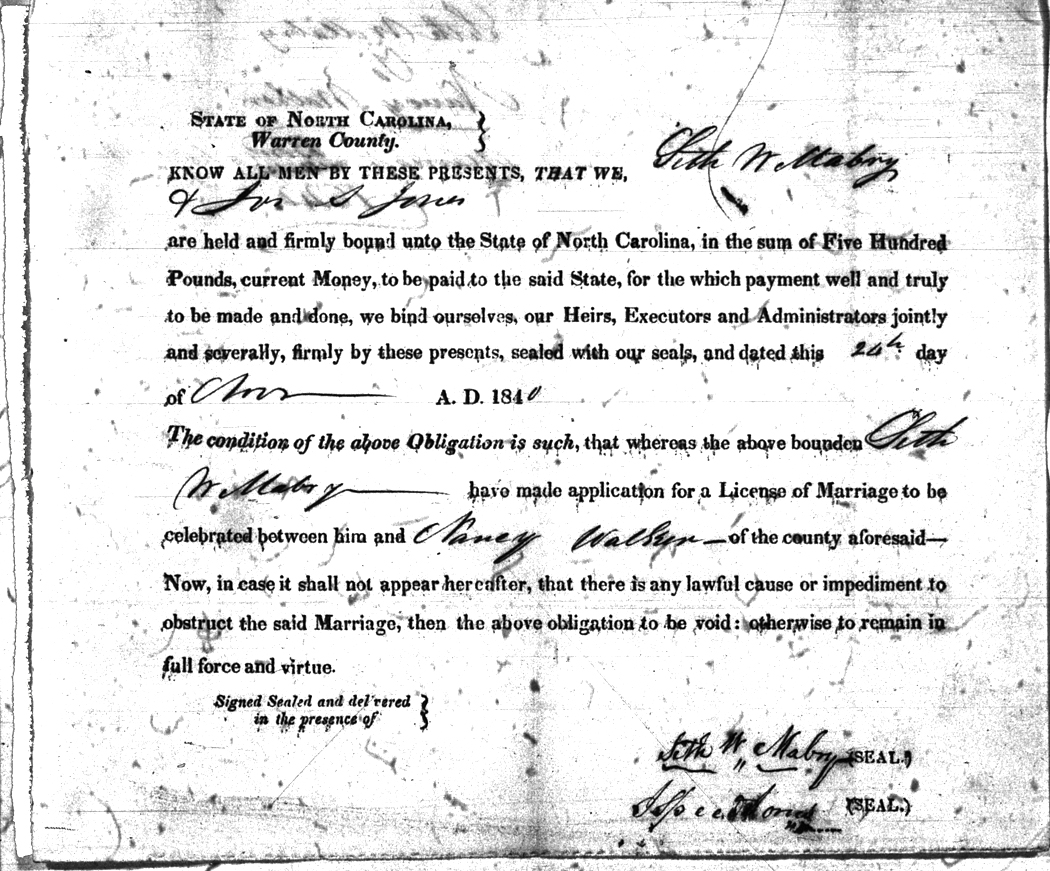 STATE OF NORTH CAROLINA,
Warren County.
KNOW ALL MEN BY THESE PRESENTS, THAT WE, Seth W Mabry
& S Jones
are held and firmly bound unto the State of North Carolina, in the sum of Five Hundred
Pounds, current Money, to be paid to the said State, for the which payment well and truly
to be made and done, we bind ourselves, our Heirs, Executors and Administrators jointly
and severally, firmly by these presents, sealed with our seals, and dated this 24th day
of Nov A. D. 1840
The condition of the above Obligation is such, that whereas the above bounden Seth
W Mabry have made application for a License of Marriage to be
celebrated between him and Nancy Walker — of the county aforesaid—
Now, in case it shall not appear hereafter, that there is any lawful cause or impediment to
obstruct the said Marriage, then the above obligation to be void: otherwise to remain in
full force and virtue.
Signed Sealed and del'vered
in the presence of
Seth W Mabry (SEAL.)
(SEAL.)